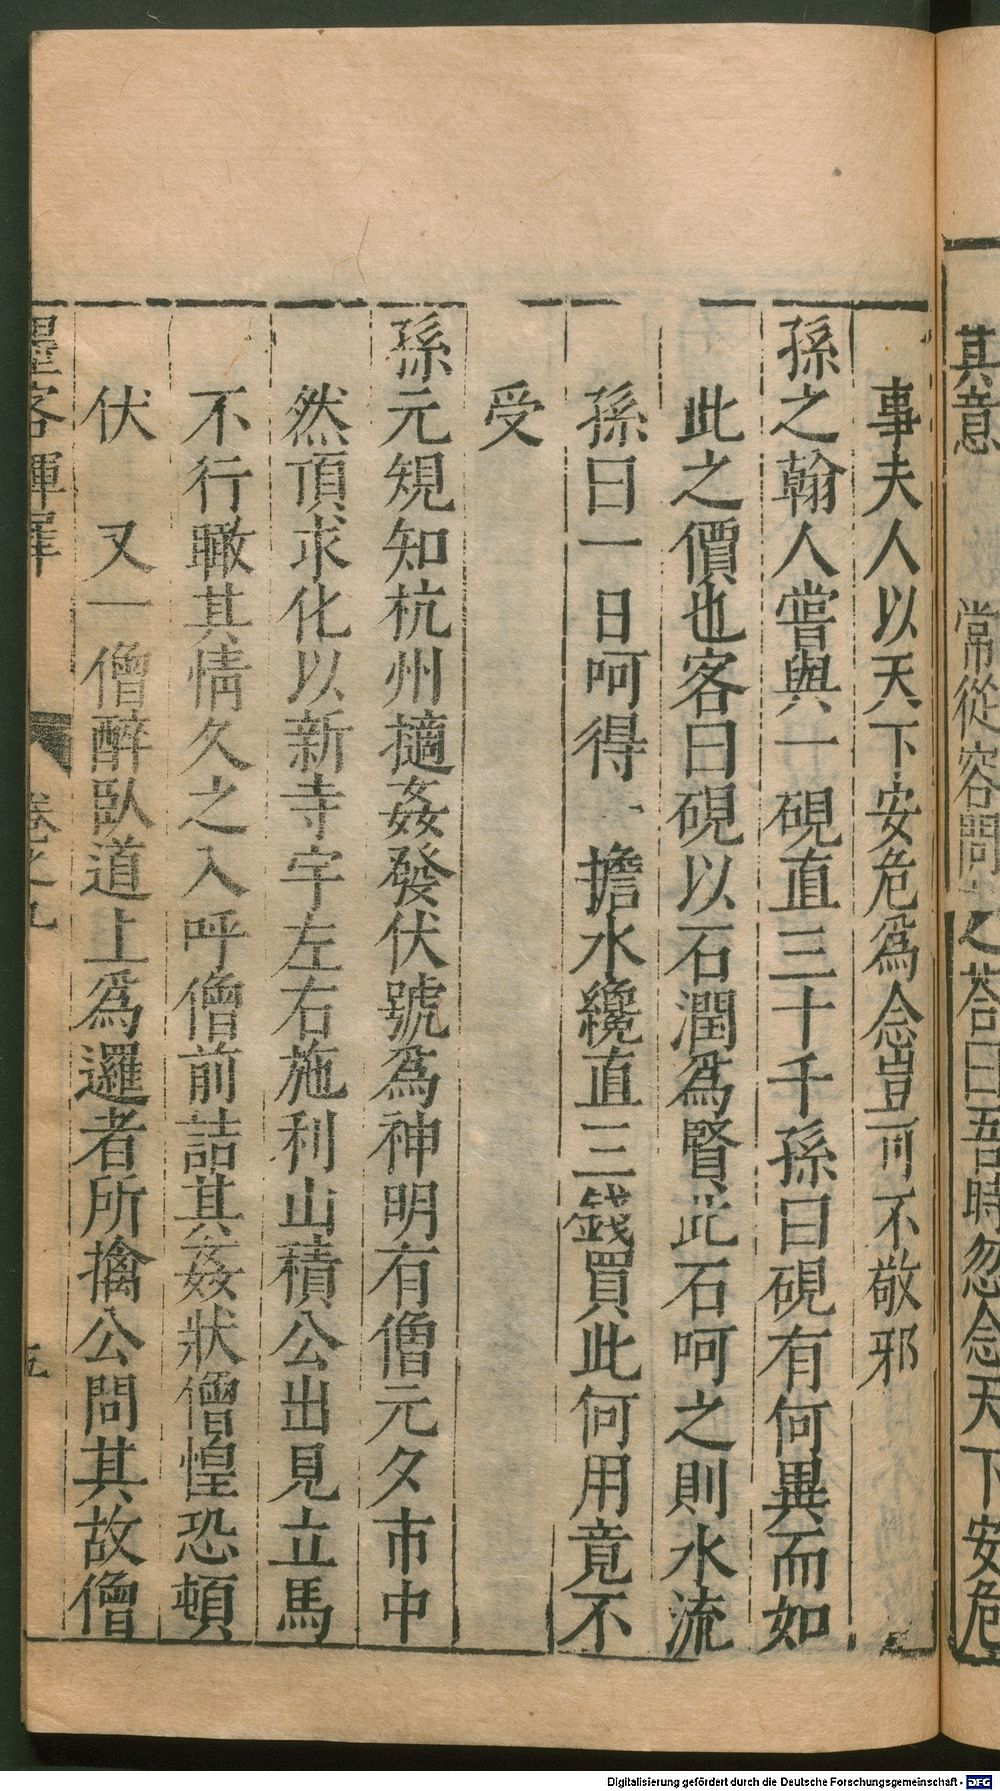 其意 常從容問之答曰吾時忽念天下安危
事夫人以天下安危為念豈可不敬邪
孫之翰人嘗與一硯直三十千孫曰硯有何異而如
此之價也客曰硯以石潤為賢此石呵之則水流
孫曰一日呵得 擔水纔直三錢買此何用竟不
受
孫元規知杭州擿姦發伏號為神明有僧元夕市中
然頂求化以新寺宇左右施利山積公出見立馬
不行瞰其情久之入呼僧前詰其姦狀僧惶恐頓
伏 又一僧醉臥道上為邏者所擒公問其故僧
墨客揮犀 卷之九 五
Digitalisierung gefördert durch die Deutsche Forschungsgemeinschaft - DFG